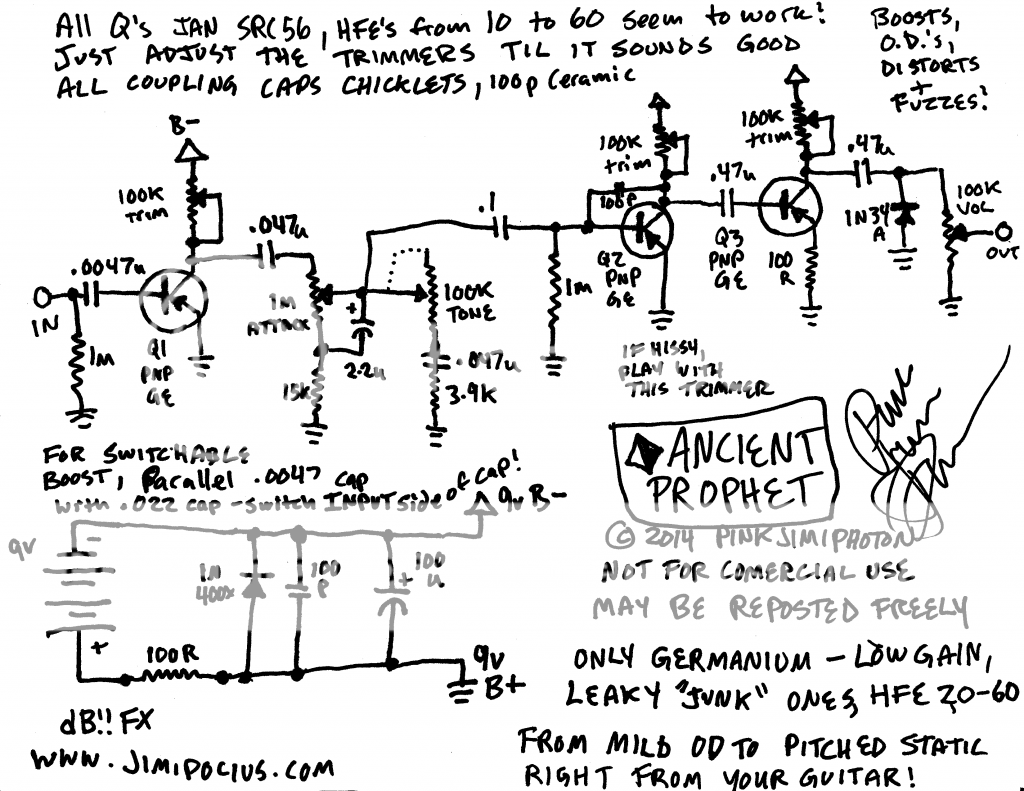 All Q's JAN SRC56, HFE's from 10 to 60 seem to work!
JUST ADJUST THE TRIMMERS TIL IT SOUNDS GOOD
ALL COUPLING CAPS CHICKLETS, 100p Ceramic
BOOSTS,
O.D.'s,
DISTORTS
+
FUZZES!
B-
100K
trim
.0047u
IN
1M
Q1
PNP
GE
.047u
1M
ATTACK
15K
+
2.2u
100K
TONE
.047u
3.9K
.1
1M
100K
trim
100p
Q2
PNP
GE
.47u
Q3
PNP
GE
100K
trim
100
R
.47u
1N34
A
100K
VOL
OUT
IF HISSY,
PLAY WITH
THIS TRIMMER
FOR SWITCHABLE
BOOST, Parallel .0047 cap
with .022 cap - switch INPUT side of cap!
9v B-
9v
-
+
1N
400x
100
P
100
u
+
100R
9v
B+
ANCIENT
PROPHET
© 2014 PINKJIMIPHOTON
NOT FOR COMERCIAL USE
MAY BE REPOSTED FREELY
ONLY GERMANIUM - LOW GAIN,
LEAKY "JUNK" ONES, HFE 20-60
FROM MILD OD TO PITCHED STATIC
RIGHT FROM YOUR GUITAR!
dB!! FX
WWW.JIMIPOCIUS.COM